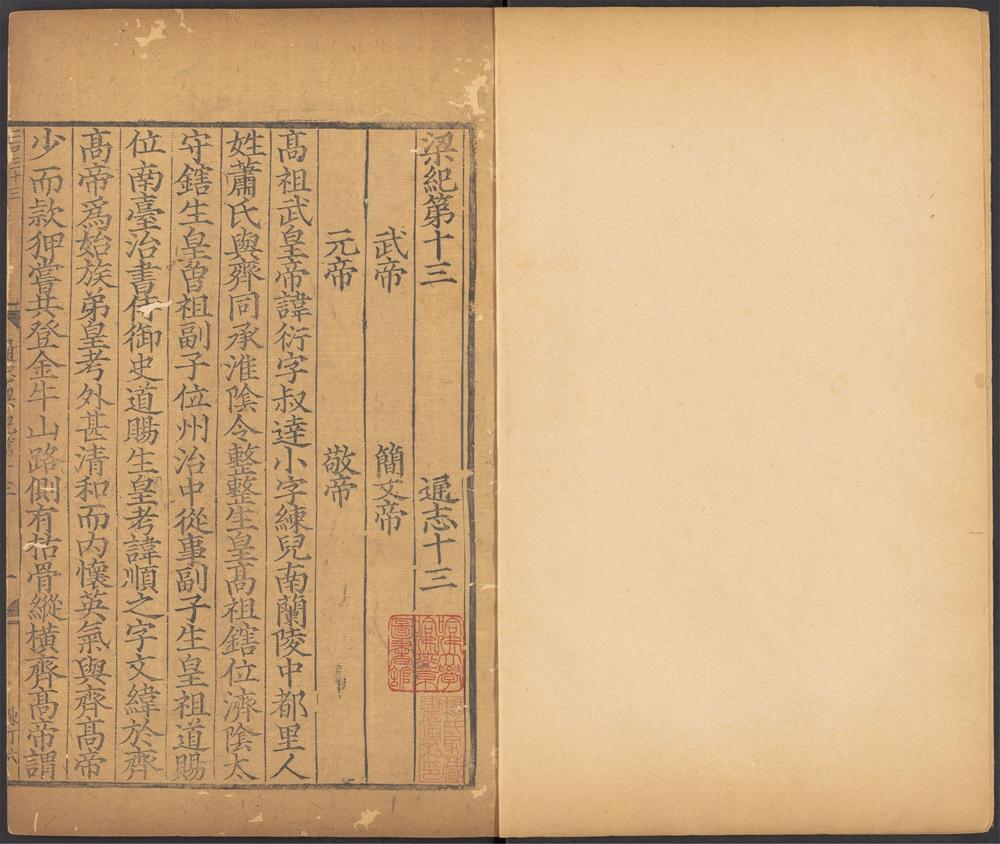 梁紀第十三 通志十三
武帝 簡文帝
元帝 敬帝
高祖武皇帝諱衍字叔達小字練兒南蘭陵中都里人
姓蕭氏與齊同承淮陰令整整生皇高祖鎋位濟陰太
守鎋生皇曾祖副子位州治中從事副子生皇祖道賜
位南臺治書侍御史道賜生皇考諱順之字文緯於齊
高帝爲始族弟皇考外甚清和而内懷英氣與齊高帝
少而款狎嘗共登金牛山路側有枯骨縱橫齊高帝謂
哈佛大學
哈佛燕京
圖書館